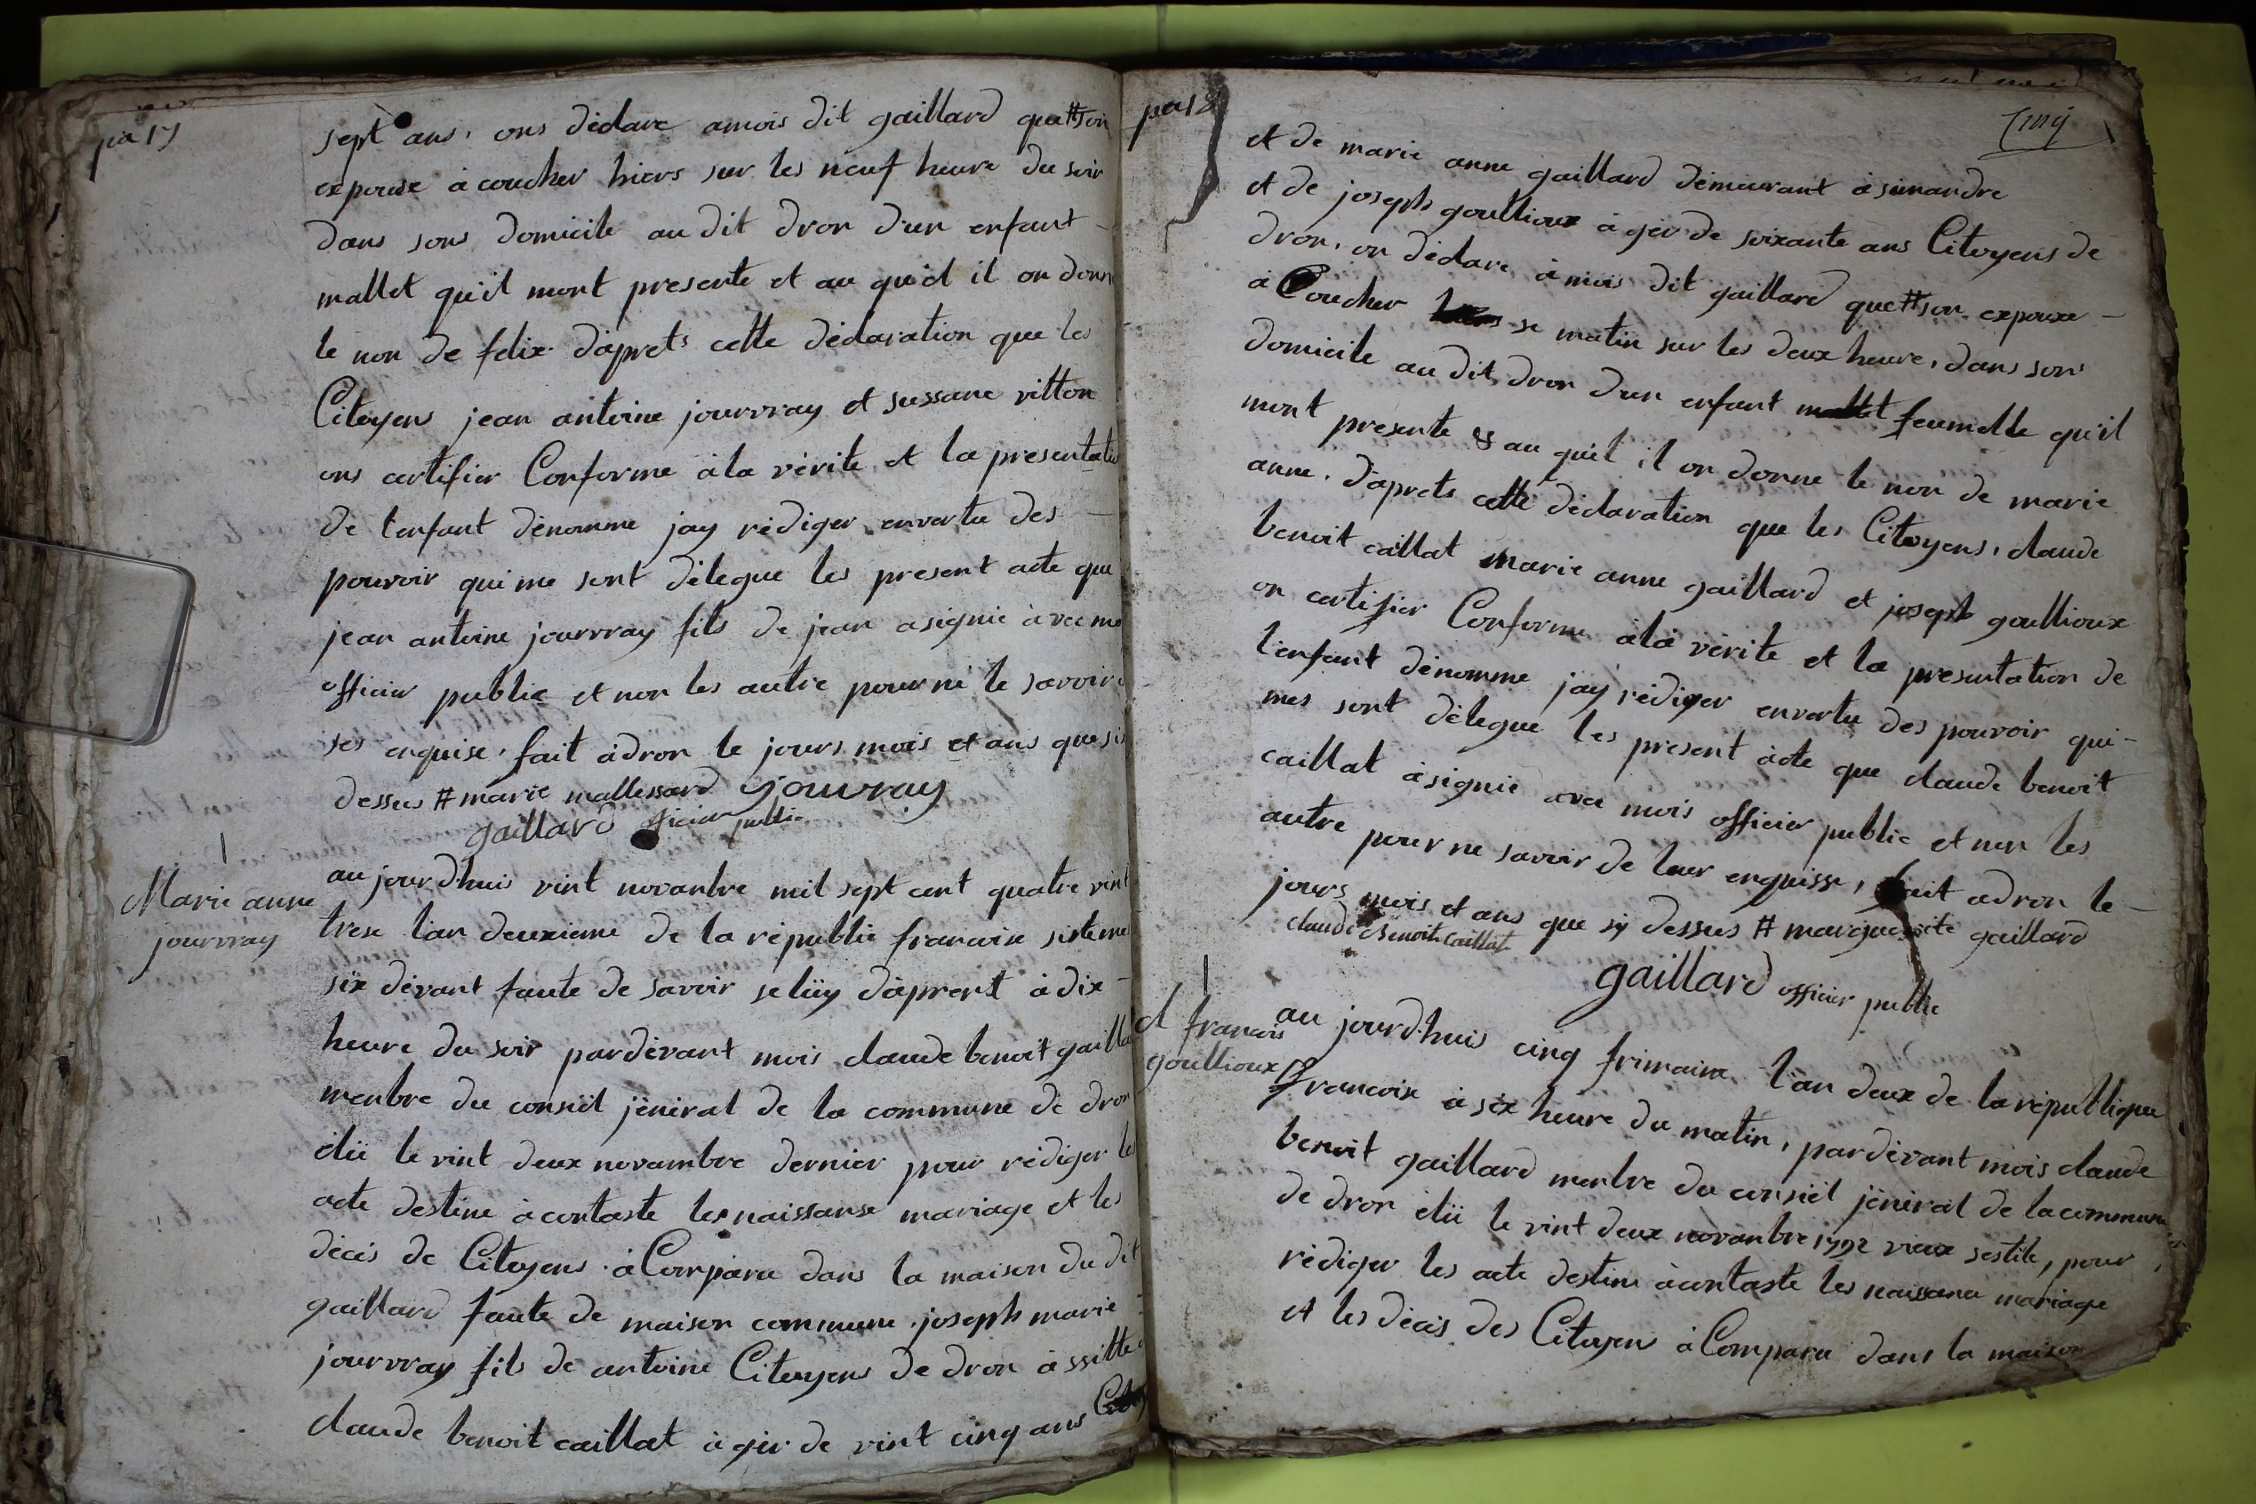 pa 17
sept ans, ons déclare amois dit gaillard que # son
expouse à coucher hiers sur les neuf heure du soir
dans sons domicile au dit dron d'un enfant
mallet qu'il mont presente et au quel il on donn
le non de felix. d'aprets cette déclaration que les
Citoyens jean antoine jourvray et sussane vitton
ons certifier Conforme à la vérite et la presentatio
de l'enfant dénomme jay rédiger envertu des
pouvoir qui me sont délegue les present acte que
jean antoine jourvray fils de jean a signié àvec moi
officier public et non les autre pour ne le savoir
ses enquise, fait à dron le jours mois et ans que si
dessus # marie mallessard jouvray
gaillard officier public
1
Marie anne
jourvray
au jourd'huis vint novanbre mil sept cent quatre vint
trese l'an deuxieme de la républic francoise sisteme
six dévant faute de savoir seluy d'aprent à dix
heure du soir pardévant mois claude benoit gailla
menbre du conseil jéniral de la commune de dron
élü le vint deux novambre dernier pour rédiger les
acte destine à contaste les naissanse mariage et les
décès de Citoyens à Comparu dans la maison du dit
gaillard faute de maison commune joseph marie
jourvray fils de antoine Citoyens de dron à ssitte
claude benoit caillat à gér de vint cinq ans
pa 18
cinq
et de marie anne gaillard démeurant à simandre
et de joseph goullioux à gér de soixante ans Citoyens de
dron, on déclare à mois dit gaillard que # son expouxe
à Coucher se matin sur les deux heure, dans sons
domicile au dit dron d'un enfant feumelle qu'il
mont présente & au quel il on donne le non de marie
anne. d'aprets cette déclaration que les Citoyens, claude
benoit caillat marie anne gaillard et joseph goullioux
on certifier Conforme à la vérite et la presentation de
l'enfant dénomme jay rédiger envertu des pouvoir qui
mes sont délegue les present acte que claude benoit
caillat à signié avec mois officier public et non les
autre pour ne savoir de leur enquisse, fait adron le
jours mois et ans que sy dessus # marguerite gaillard
claude Benoit Caillat
gaillard officier public
1
francois
goullioux
au jourd'huis cinq frimaire l'an deux de la république
francoise à six heure du matin, pardévant mois claude
benoit gaillard menbre du conseil jéniral de la commune
de dron élü le vint deux novanbre 1792 vieux sestile, pour
rédiger les acte destine à contaste les naissance mariage
et les décès des Citoyens à Comparu dans la maison